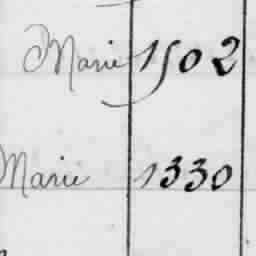 Marie 1502
Marie 1330